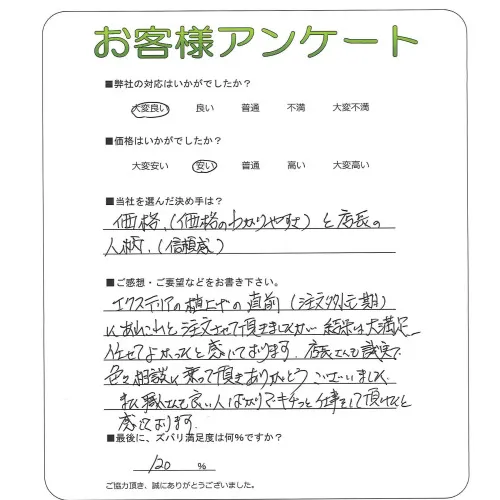 お客様アンケート
■弊社の対応はいかがでしたか?
大変良い 良い 普通 不満 大変不満
■価格はいかがでしたか?
大変安い 安い 普通 高い 大変高い
■当社を選んだ決め手は?
価格、(価格のわかりやすさ)と店長の
人柄、(信頼感)
■ご感想・ご要望などをお書き下さい。
エクステリアの値上げの直前(注文多忙期)
にあれこれと注文させて頂きましたが、結果は大満足
任せてよかったと感じております。店長さんも誠実で
色々相談に乗って頂きありがとうございいました。
また職人さんも良い人ばかりでキチッと仕事をして頂けたと
感じております。
■最後に、ズバリ満足度は何%ですか?
120 %
ご協力頂き、誠にありがとうございました。